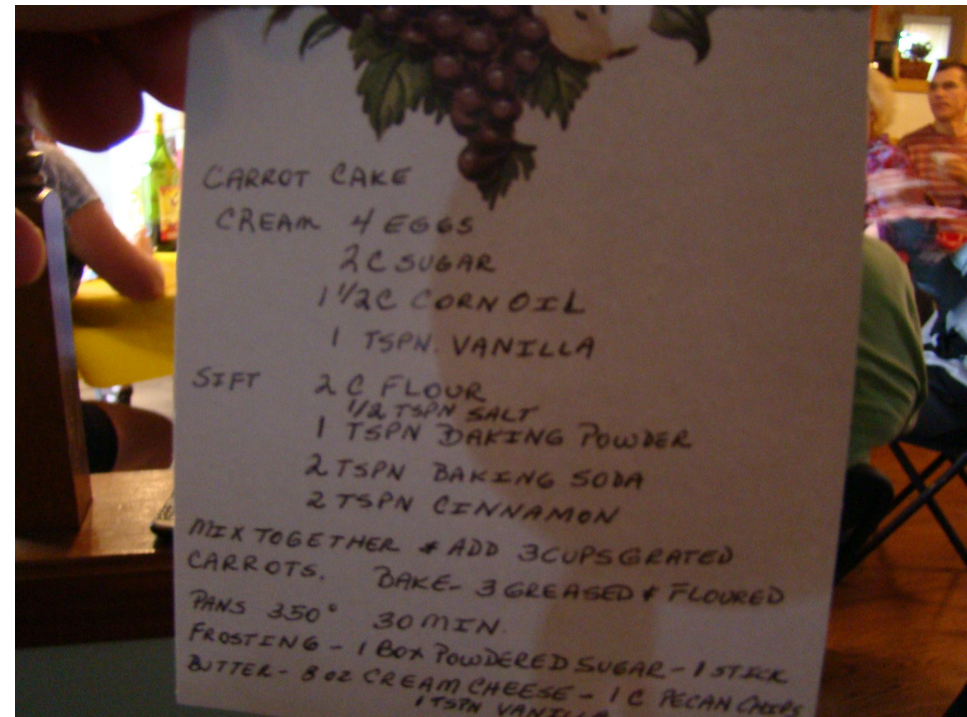 CARROT CAKE
CREAM 4 EGGS
2 C SUGAR
1 1/2 C CORN OIL
1 TSPN. VANILLA
SIFT 2 C FLOUR
1/2 TSPN SALT
1 TSPN BAKING POWDER
2 TSPN BAKING SODA
2 TSPN CINNAMON
MIX TOGETHER & ADD 3 CUPS GRATED
CARROTS. BAKE- 3 GREASED & FLOURED
PANS 350° 30 MIN.
FROSTING - 1 BOX POWDERED SUGAR - 1 STICK
BUTTER - 8 OZ CREAM CHEESE - 1 C PECAN CHIPS
1 TSPN VANILLA